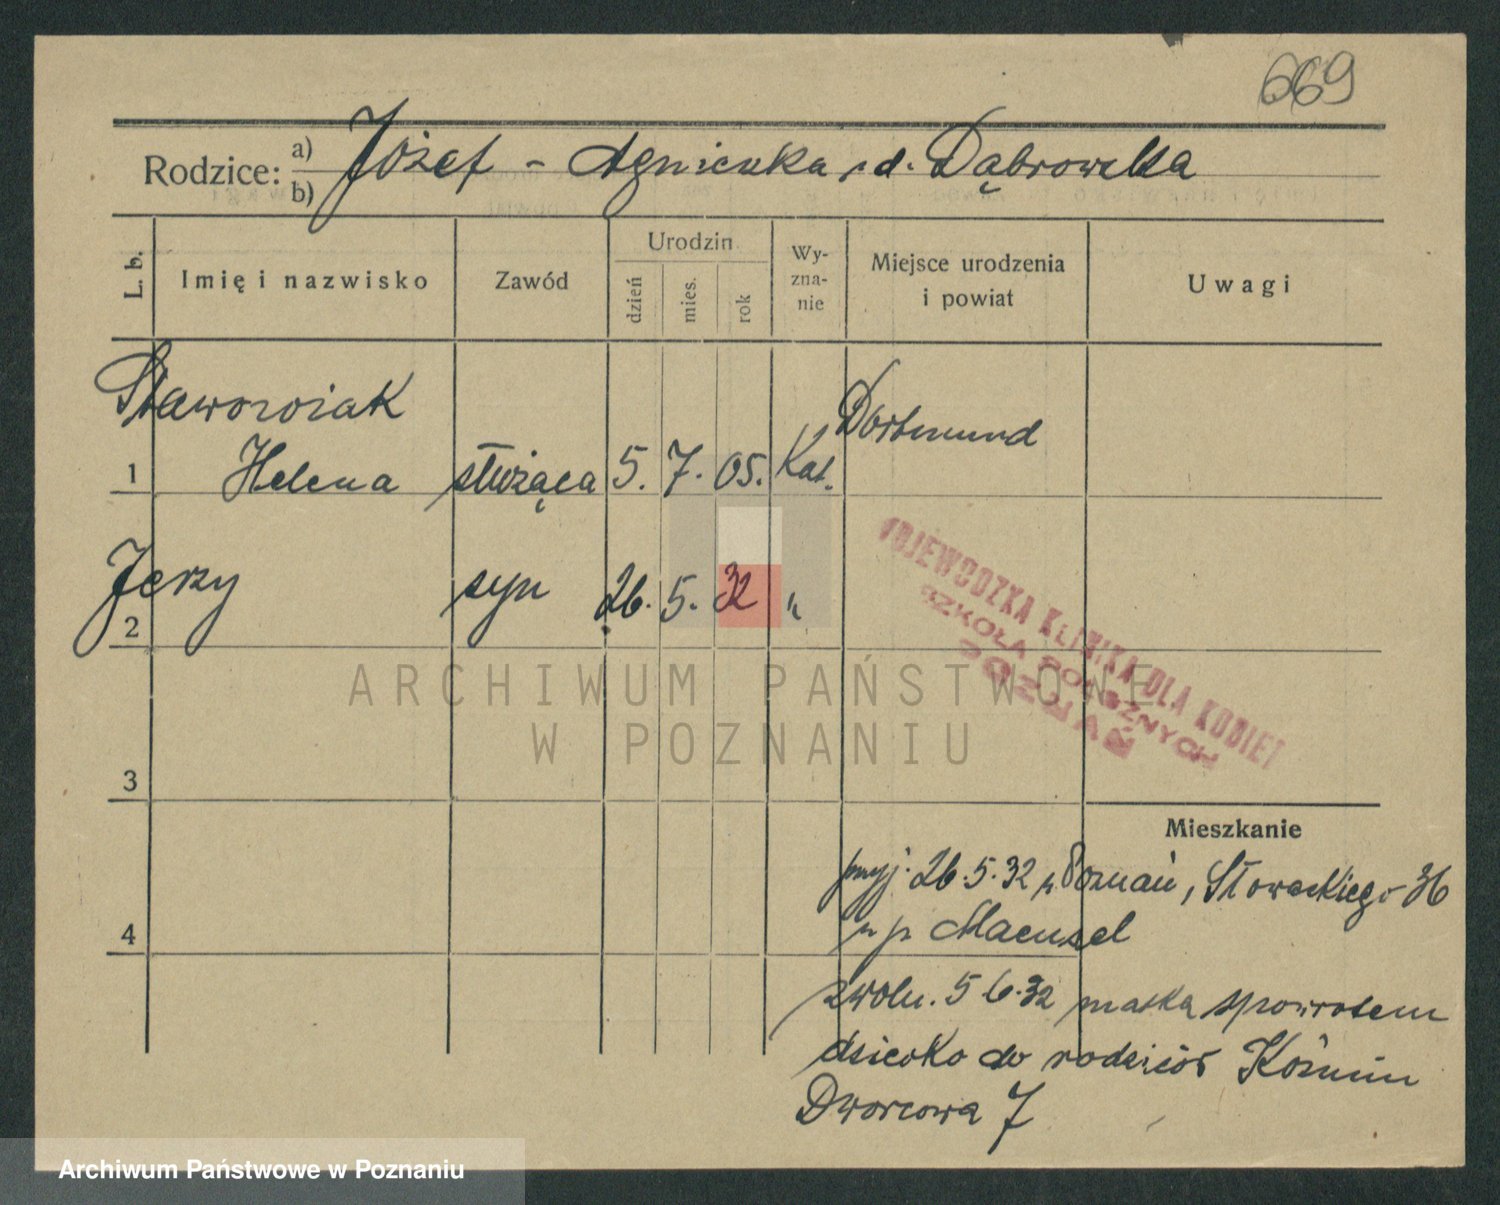 669
Rodzice: a) b) Józef - Agnieszka z d. Dąbrowska
L. b.
Imię i nazwisko
Zawód
Urodzin
dzień
mies.
rok
Wy-
zna-
nie
Miejsce urodzenia
i powiat
Uwagi
Staworoiak
1 Helena służąca 5. 7. 05. Kat. Dortmund
2 Jerzy syn 26. 5. 32 "
WOJEWÓDZKA KLINIKA DLA KOBIET
SZKOŁA POŁOŻNYCH
POZNAŃ
ARCHIWUM PAŃSTWOWE
W POZNANIU
3
Mieszkanie
przyj. 26.5.32 z Poznań, Słowackiego 36
4 u p. Maenzel
zwoln. 5 6.32 matka spowrotem
dziecko do rodziców Koźmin
Dworcowa 7
Archiwum Państwowe w Poznaniu